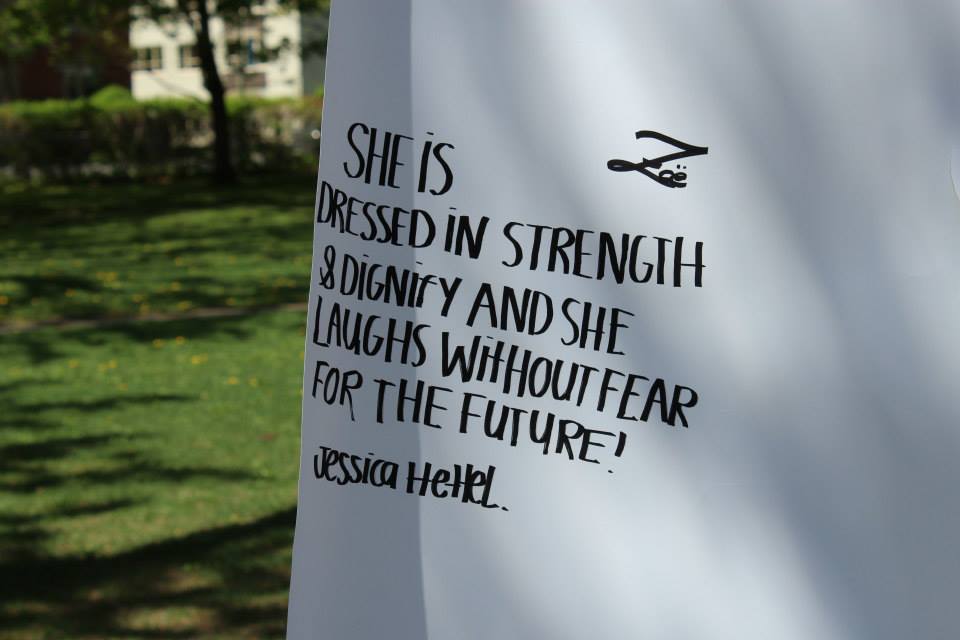 SHE iS
Zoë
DRESSED iN STRENGTH
& DiGNifY AND SHE
LAUGHS WitHOUT FEAR
FOR THE FUTURE!
Jessica